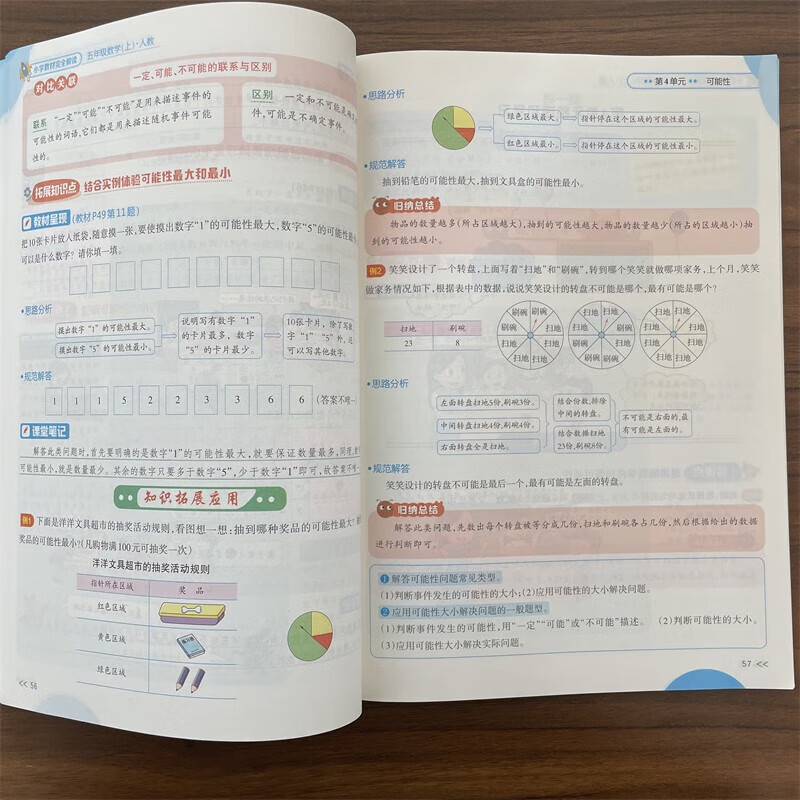 小学教材完全解读 五年级数学(上)·人教
对比关联
一定、可能、不可能的联系与区别
联系 “一定”“可能”“不可能”是用来描述事件的
可能性的词语,它们都是用来描述随机事件可能
性的。
区别 一定和不可能是
件,可能是不确定事件。
拓展知识点 结合实例体验可能性最大和最小
教材呈现 (教材P49第11题)
把10张卡片放入纸袋,随意摸一张,要使摸出数字“1”的可能性最大,数字“5”的可能性
可以是什么数字? 请你填一填。
思路分析
摸出数字“1”的可能性最大。
摸出数字“5”的可能性最小。
说明写有数字“1”
的卡片最多,数字
“5”的卡片最少。
10张卡片,除了写数
字“1”“5”外,还
可以写其他数字。
规范解答
1 1 1 5 2 2 3 3 6 6 (答案不唯一
课堂笔记
解答此类问题时,首先要明确的是数字“1”的可能性最大,就要保证数量最多,同理,
可能性最小,就是数量最少。其余的数字只要多于数字“5”,少于数字“1”即可,故答案不唯
知识拓展应用
例1 下面是洋洋文具超市的抽奖活动规则,看图想一想:抽到哪种奖品的可能性最大?
奖品的可能性最小?(凡购物满100元可抽奖一次)
洋洋文具超市的抽奖活动规则
指针所在区域 奖 品
红色区域
黄色区域
绿色区域
<< 56
第4单元 可能性
思路分析
绿色区域最大。 指针停在这个区域的可能性最大。
红色区域最小。 指针停在这个区域的可能性最小。
规范解答
抽到铅笔的可能性最大,抽到文具盒的可能性最小。
归纳总结
物品的数量越多(所占区域越大),抽到的可能性越大,物品的数量越少(所占的区域越小)抽
到的可能性越小。
例2 笑笑设计了一个转盘,上面写着“扫地”和“刷碗”,转到哪个笑笑就做哪项家务,上个月,笑笑
做家务情况如下,根据表中的数据,说说笑笑设计的转盘不可能是哪个,最有可能是哪个?
扫地 刷碗
23 8
思路分析
左面转盘扫地5份,刷碗3份。
中间转盘扫地4份,刷碗4份。
右面转盘全是扫地。
结合份数,排除
中间的转盘。
结合数据扫地
23份,刷碗8份。
不可能是右面的,最
有可能是左面的。
规范解答
笑笑设计的转盘不可能是最后一个,最有可能是左面的转盘。
归纳总结
解答此类问题,先数出每个转盘被等分成几份,扫地和刷碗各占几份,然后根据给出的数据
进行判断即可。
1 解答可能性问题常见类型。
(1)判断事件发生的可能性的大小;(2)应用可能性的大小解决问题。
2 应用可能性大小解决问题的一般题型。
(1)判断事件发生的可能性,用“一定”“可能”或“不可能”描述。 (2)判断可能性的大小。
(3)应用可能性大小解决实际问题。
57 <<